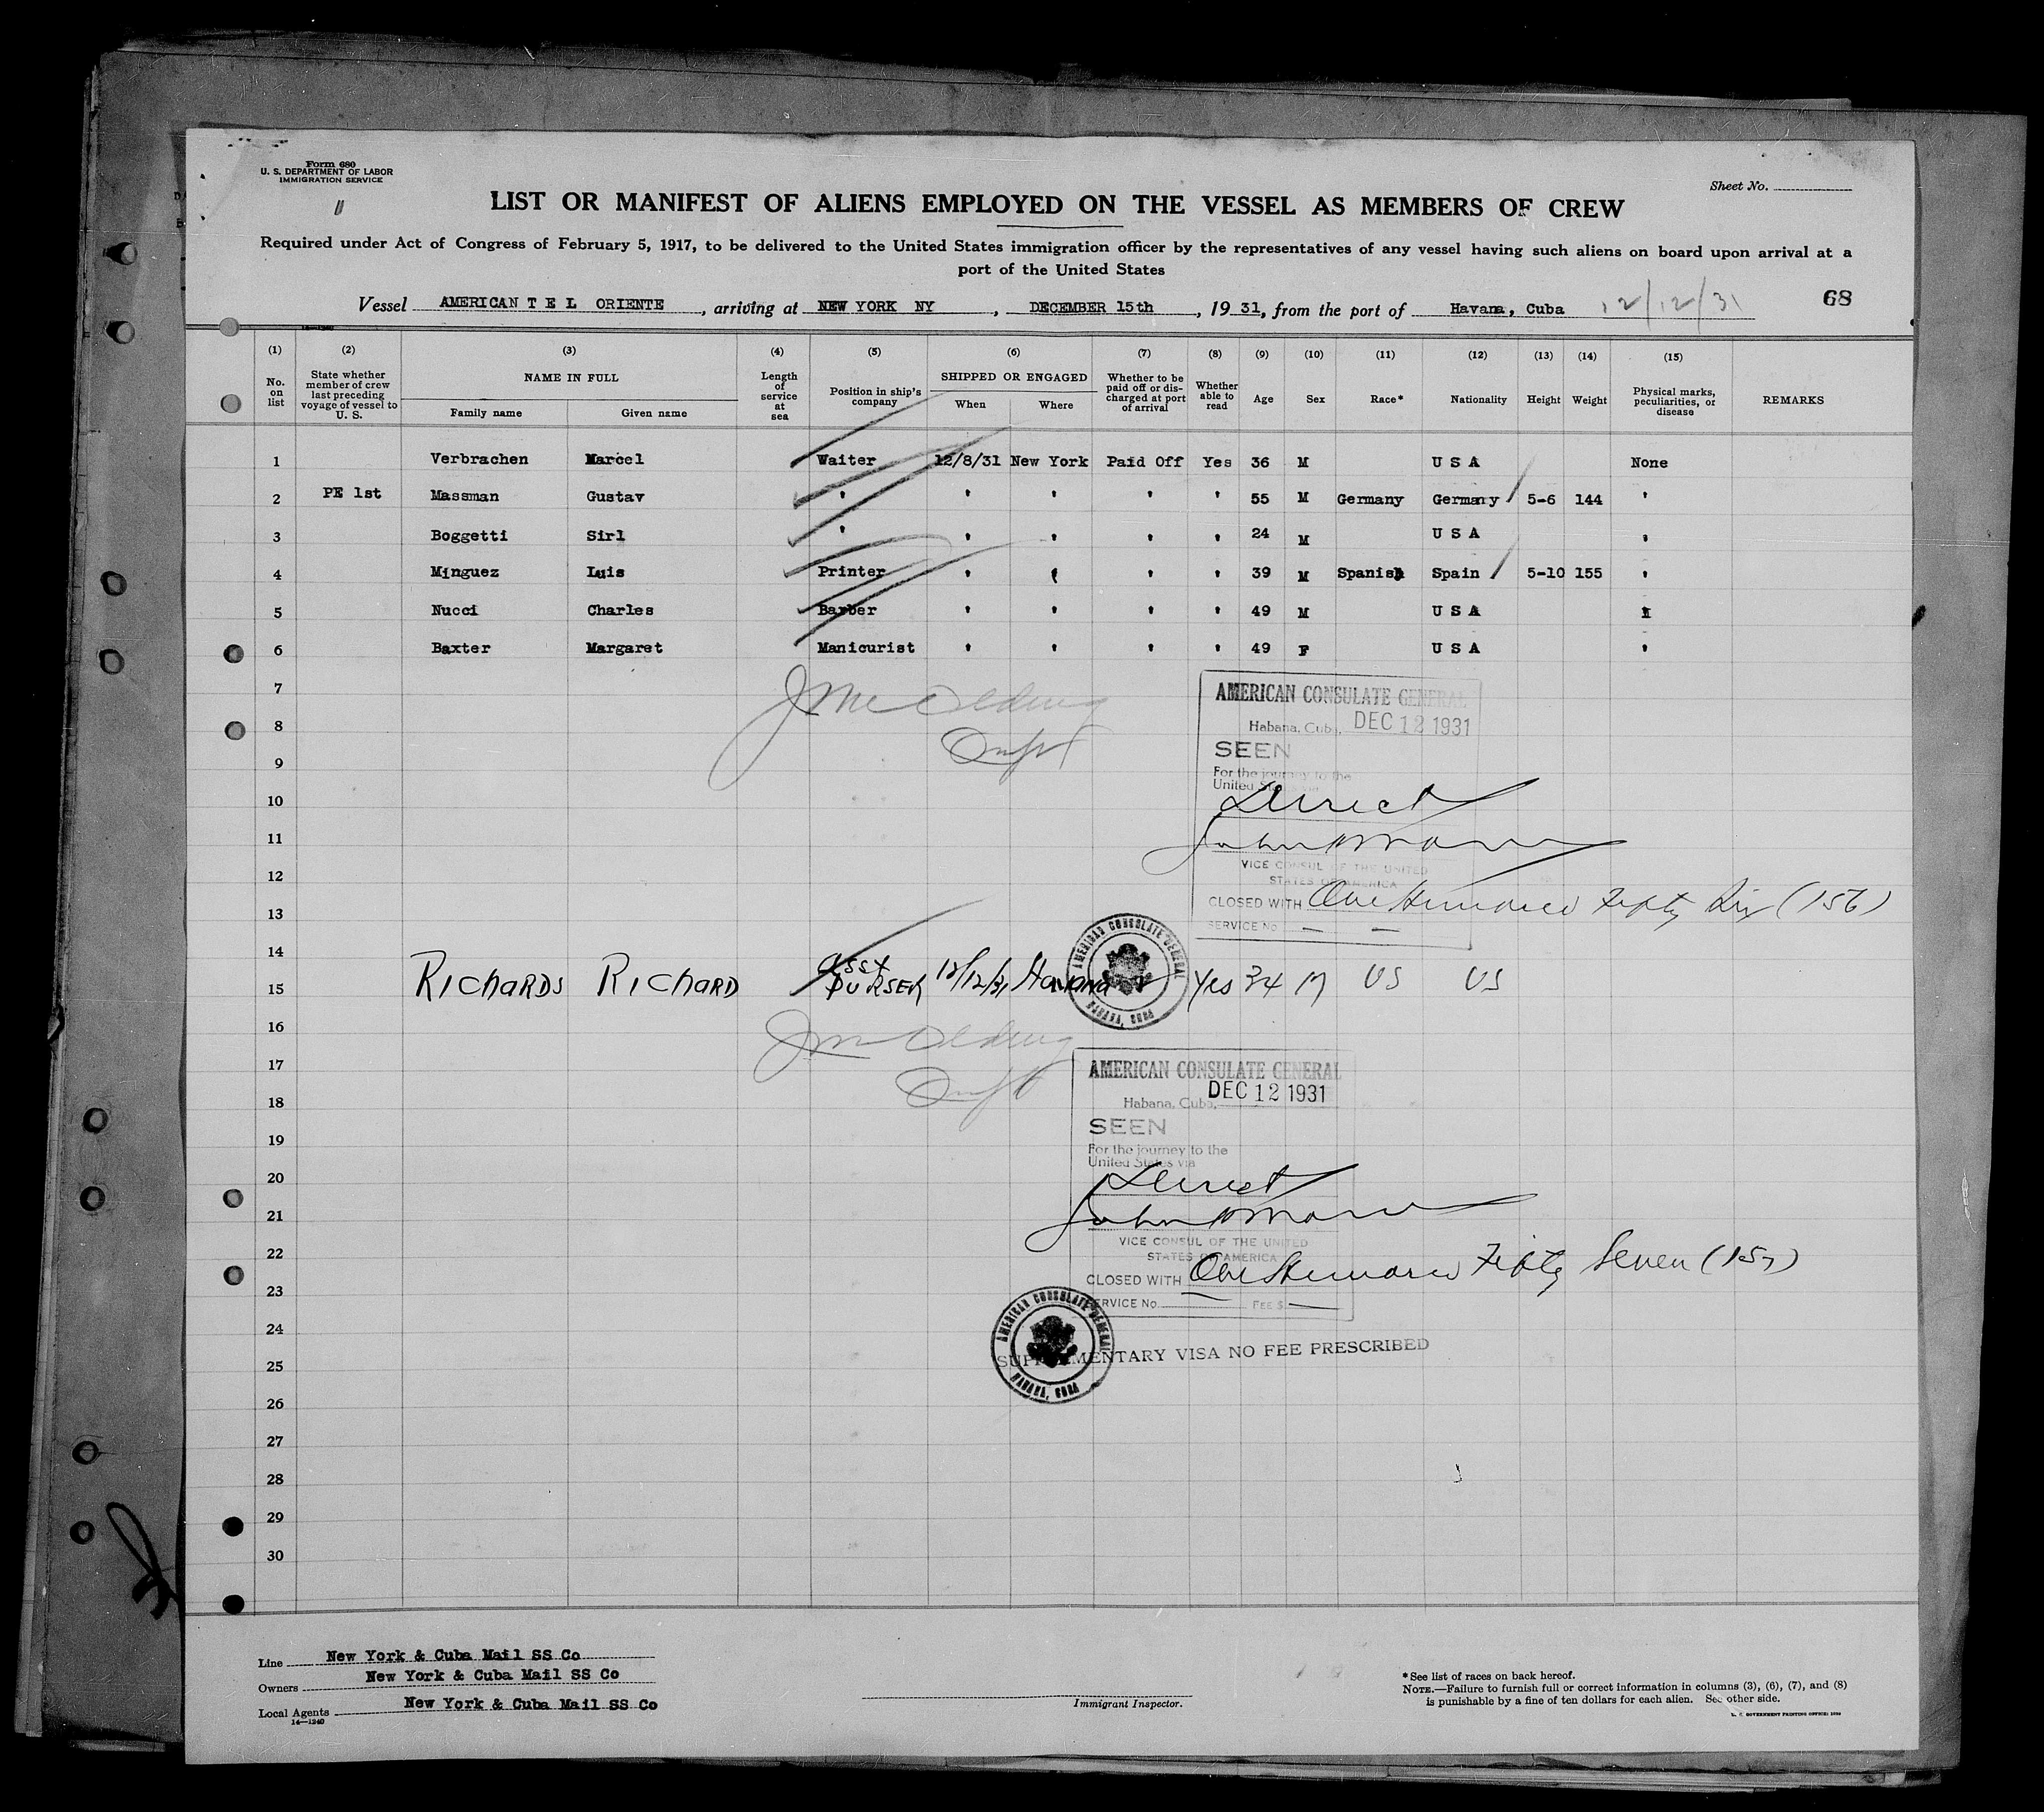 Form 680
U. S. DEPARTMENT OF LABOR
IMMIGRATION SERVICE
Sheet No.
LIST OR MANIFEST OF ALIENS EMPLOYED ON THE VESSEL AS MEMBERS OF CREW
Required under Act of Congress of February 5, 1917, to be delivered to the United States immigration officer by the representatives of any vessel having such aliens on board upon arrival at a
port of the United States
Vessel AMERICAN T E L ORIENTE, arriving at NEW YORK NY, DECEMBER 15th, 1931, from the port of Havana, Cuba 12/12/31 68
(1) (2) (3) (4) (5) (6) (7) (8) (9) (10) (11) (12) (13) (14) (15)
No. on list
State whether member of crew last preceding voyage of vessel to U. S.
NAME IN FULL
Family name Given name
Length of service at sea
Position in ship's company
SHIPPED OR ENGAGED
When Where
Whether to be paid off or discharged at port of arrival
Whether able to read
Age Sex Race* Nationality Height Weight
Physical marks, peculiarities, or disease
REMARKS
1 Verbrachen Marcel Waiter 12/8/31 New York Paid Off Yes 36 M U S A None
2 PE 1st Massman Gustav ' ' ' ' ' 55 M Germany Germany 5-6 144 '
3 Boggetti Sirl ' ' ' ' ' 24 M U S A '
4 Minguez Luis Printer ' ' ' ' 39 M Spanish Spain 5-10 155 '
5 Nucci Charles Barber ' ' ' ' 49 M U S A
6 Baxter Margaret Manicurist ' ' ' ' 49 F U S A '
7
8
9
10
11
12
13
14
15 RICHARDS RICHARD Asst PURSER 12/12/31 Havana Yes 34 M US US
16
17
18
19
20
21
22
23
24
25
26
27
28
29
30
AMERICAN CONSULATE GENERAL
Habana, Cuba, DEC 12 1931
SEEN
For the journey to the
United States via
Direct
VICE CONSUL OF THE UNITED
STATES OF AMERICA
CLOSED WITH One Hundred Fifty Six (156)
SERVICE No
AMERICAN CONSULATE GENERAL
HABANA, CUBA
AMERICAN CONSULATE GENERAL
DEC 12 1931
Habana, Cuba,
SEEN
For the journey to the
United States via
Direct
VICE CONSUL OF THE UNITED
STATES OF AMERICA
CLOSED WITH One Hundred Fifty Seven (157)
SERVICE No. FEE $
AMERICAN CONSULATE GENERAL
HABANA, CUBA
SUPPLEMENTARY VISA NO FEE PRESCRIBED
Line New York & Cuba Mail SS Co
Owners New York & Cuba Mail SS Co
Local Agents New York & Cuba Mail SS Co
14—1240
Immigrant Inspector.
*See list of races on back hereof.
NOTE.—Failure to furnish full or correct information in columns (3), (6), (7), and (8)
is punishable by a fine of ten dollars for each alien. See other side.